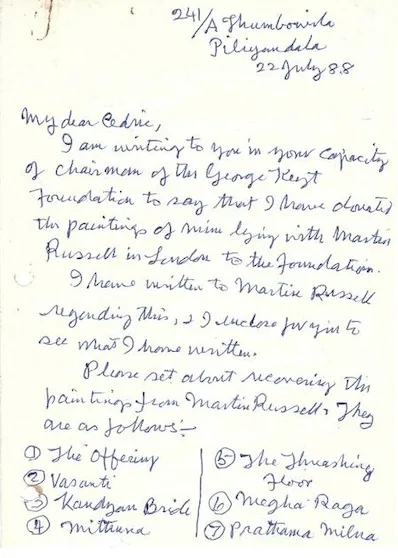 241/A Thumbowila
Piliyandala
22 July 88
My dear Cedric,
I am writing to you in your capacity
of chairman of the George Keyt
Foundation to say that I have donated
the paintings of mine lying with Martin
Russell in London to the Foundation.
I have written to Martin Russell
regarding this, & I enclose for you to
see what I have written.
Please set about recovering the
paintings from Martin Russell. They
are as follows:—
① The Offering
② Vasanti
③ Kandyan Bride
④ Mithuna
⑤ The Threshing
Floor
⑥ Megha Raga
⑦ Prathama Milna